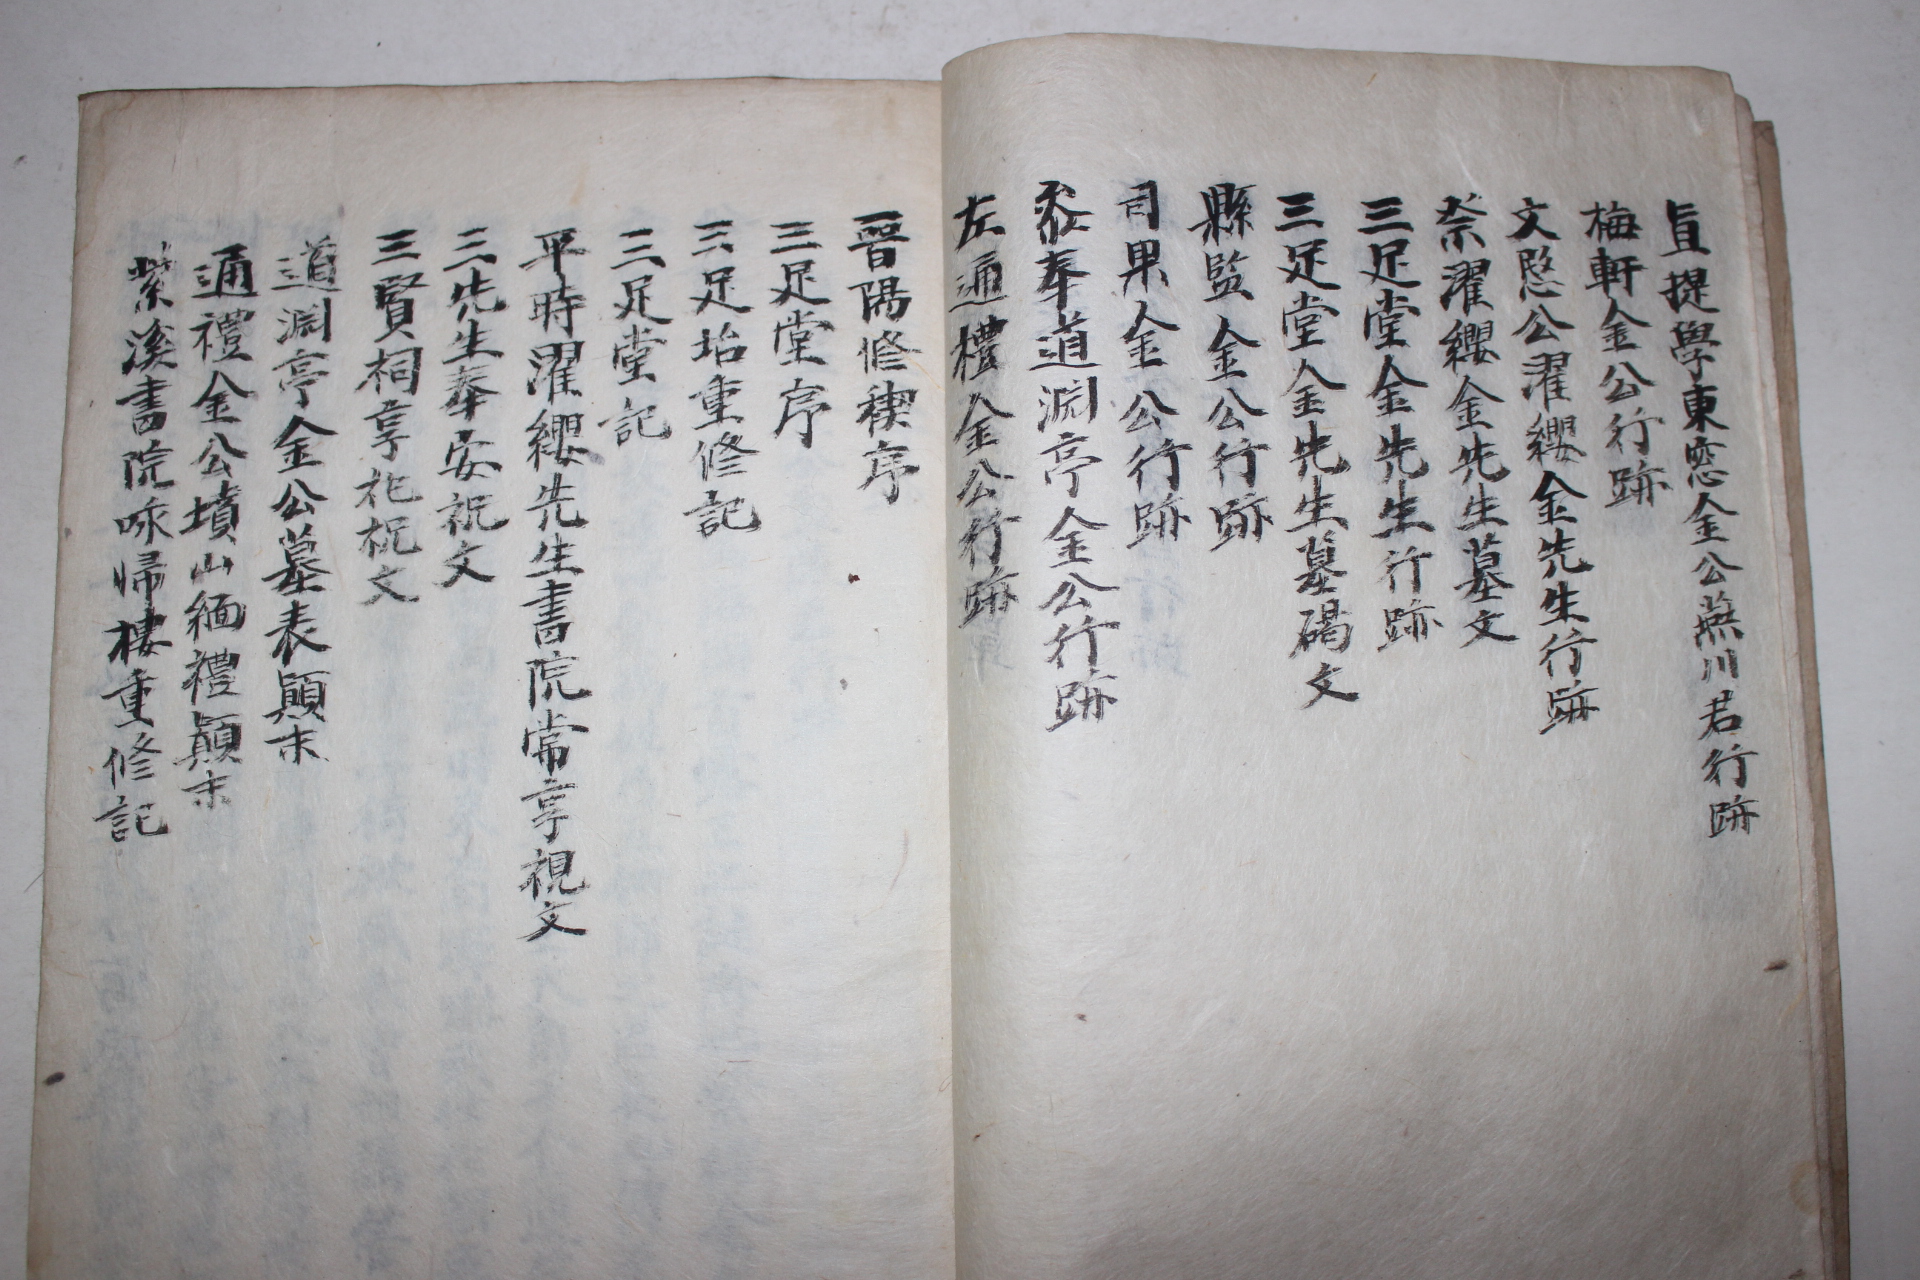 直提學東窓金公燕川君行跡
梅軒金公行跡
文愍公濯纓金先生行跡
祭濯纓金先生墓文
三足堂金先生行跡
三足堂金先生墓碣文
縣監金公行跡
司果金公行跡
叅奉道淵亭金公行跡
左通禮金公行跡
晋陽修稧序
三足堂序
三足坮重修記
三足堂記
平時濯纓先生書院常享祝文
三先生奉安祝文
三賢祠享祀祝文
道淵亭金公墓表顚末
通禮金公墳山緬禮顚末
紫溪書院咏歸樓重修記